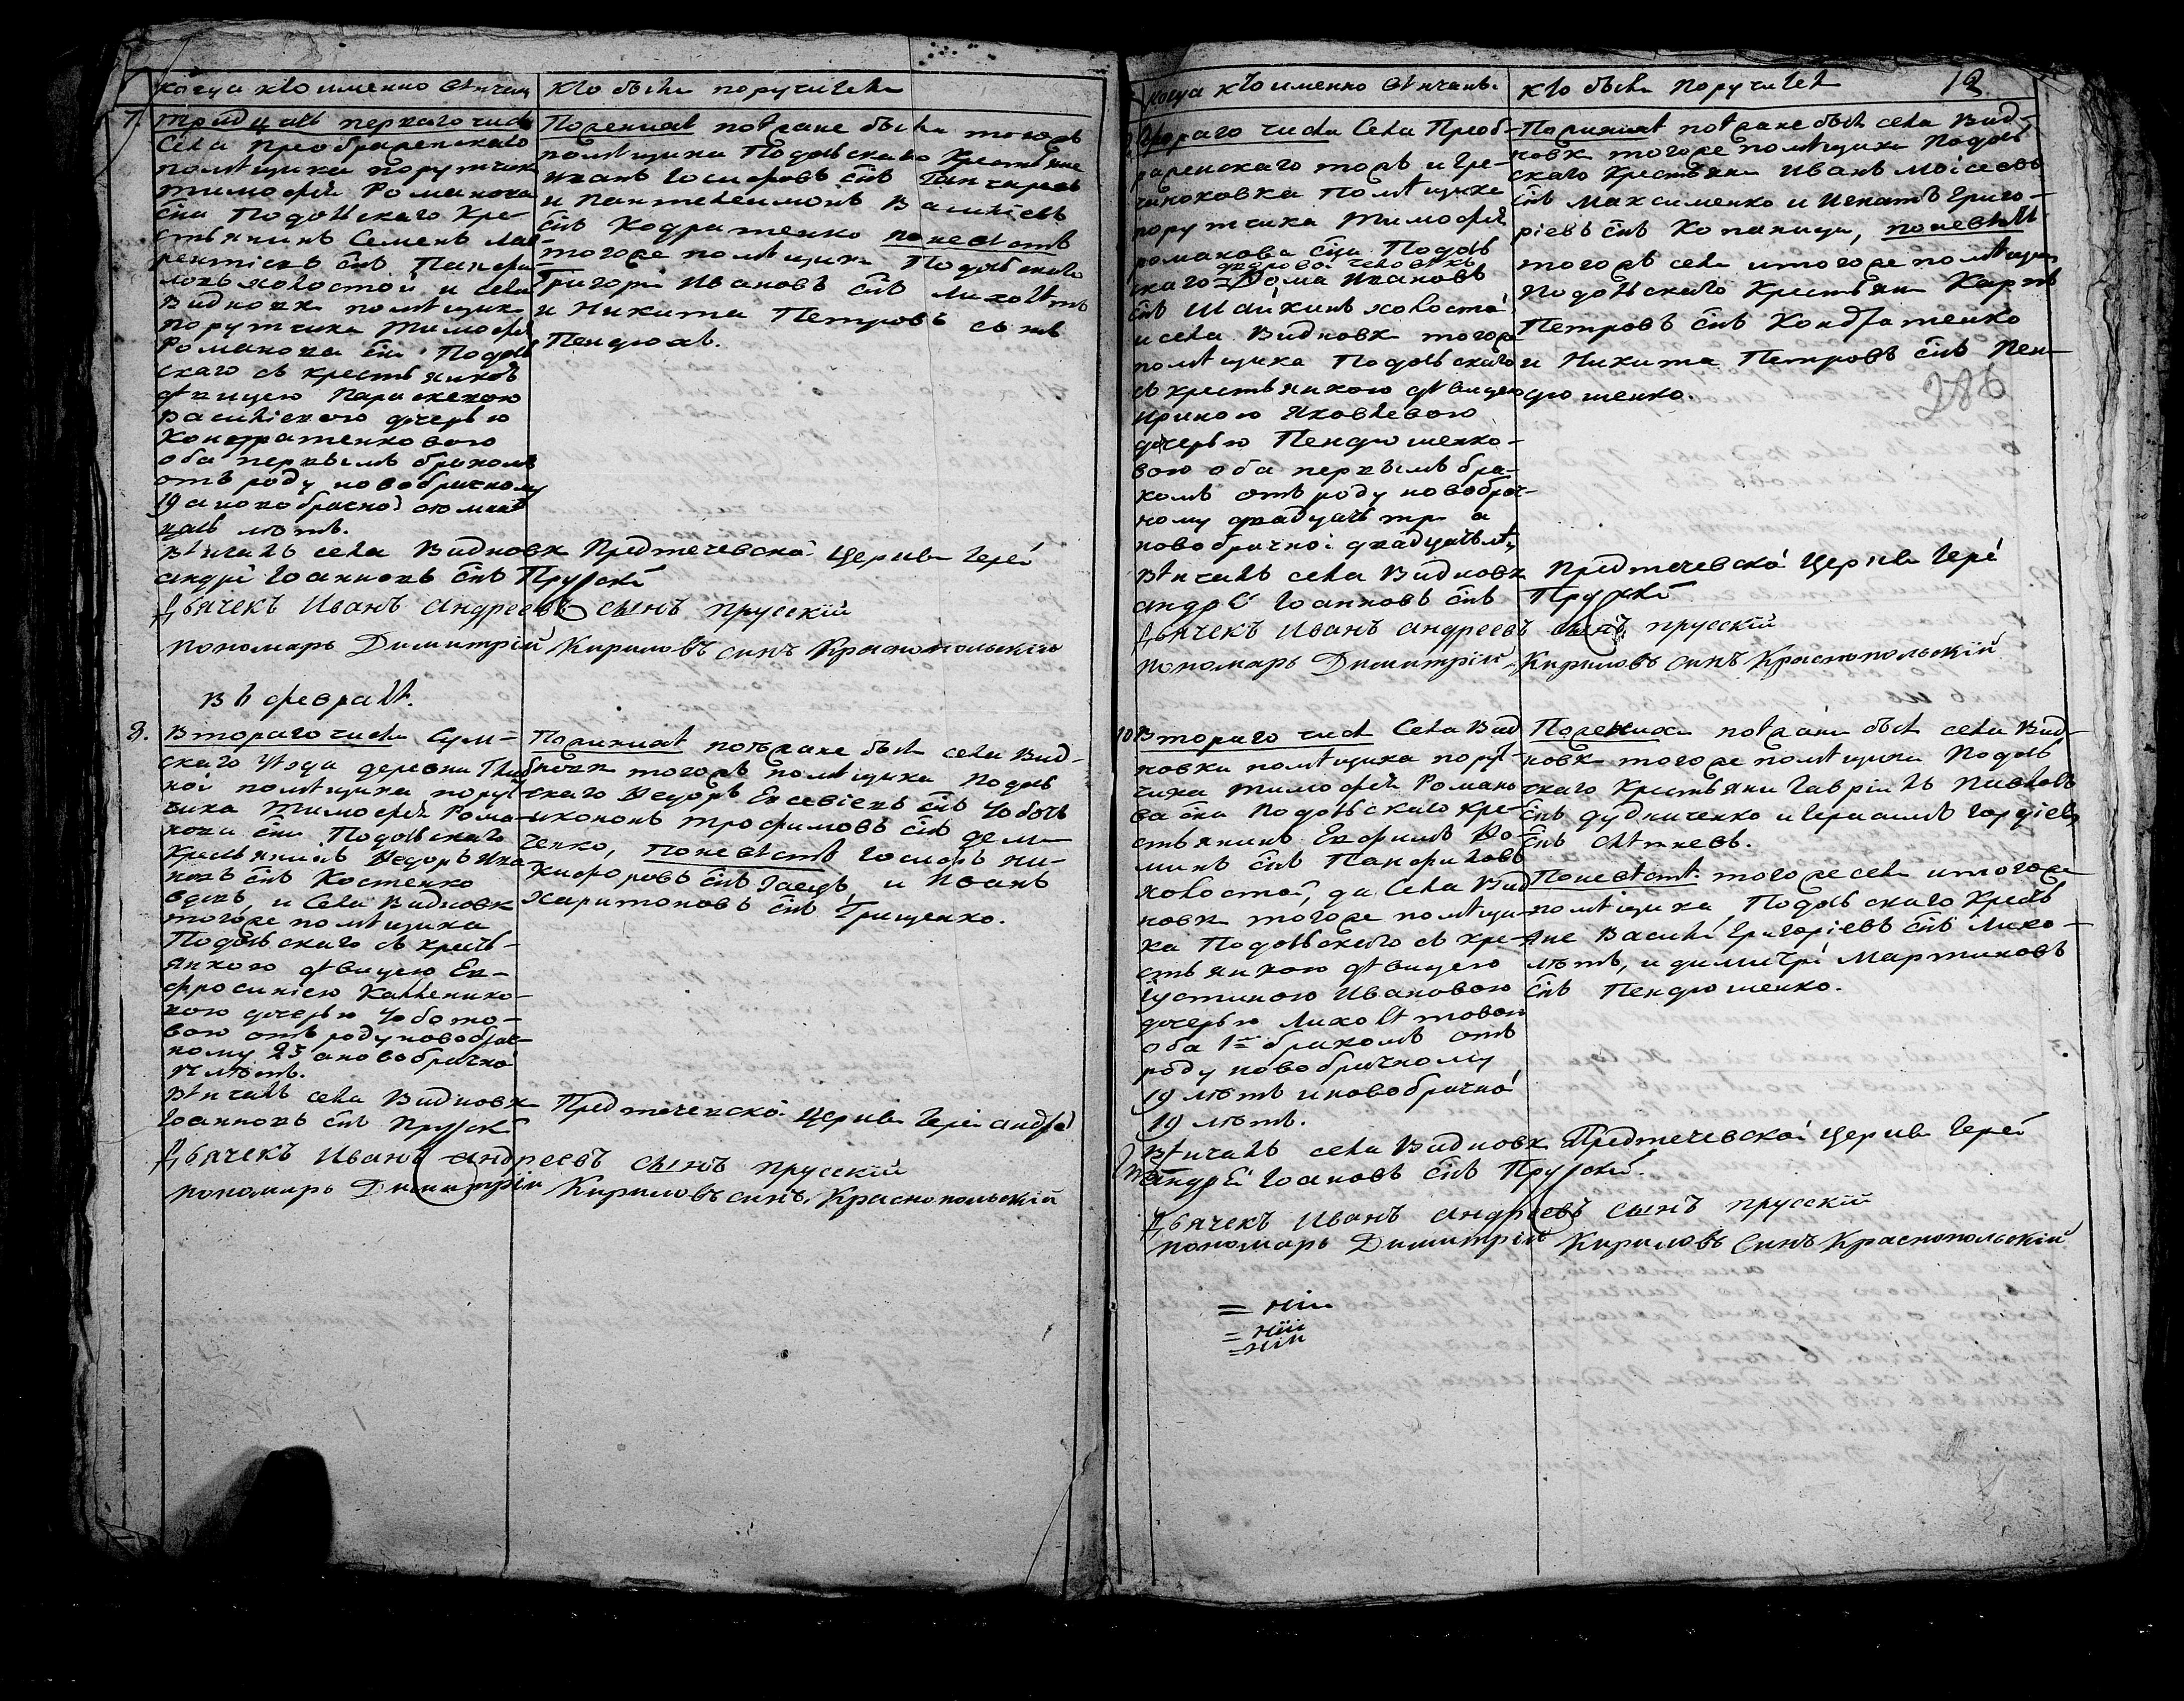 когда кто именно вѣнчан
Кто были поручители
7.
тридцать перваго числа
Села Преображенскаго
помѣщика порутчика
тимофея Романова
сна Подолскаго Кре-
стьянинъ Семенъ Лав
рентіевъ снъ Панфи
ловъ холостой и села
Видновк помѣщика
порутчика тимофея
Романова сна Подол
скаго съ крестьянкою
дѣвицею Параскевою
Василіевою дочерью
Кондратенковою
оба первымъ бракомъ
отъ роду новобрачному
19 а новобрачной
лѣтъ.
По женихѣ потзане были тогожъ
помѣщика Подолскаго Крестьяне
иванъ Іосифовъ снъ Ганчаревъ
и Пантелеимонъ Василіевъ
снъ Кодратенко по невѣстѣ
тогоже помѣщика Подолского
Григори Ивановъ снъ Лихолѣтъ
и Никита Петровъ снъ
Пендюхъ.
вѣнчалъ села Видновк Предтечевской церкви Іерей
андрей Іоанновъ снъ Прускій
Дьячекъ Иванъ Андреевъ сынъ прусскій
пономарь Димитрій Кириловъ синъ Краснопольскій
въ февралѣ.
8.
Втораго числа, Сум-
скаго уѣзда деревни
ной помѣщика порут
чика тимофея Рома-
нова сна Подолскаго
Крестьянинъ Федоръ Ива
новъ снъ Костенко
вдовъ, и Села Видновк
тогоже помѣщика
Подолскаго съ крестъ-
янкою дѣвицею Ев-
фросиніею Каллѣнико-
вою дочерью Чобото-
вою отъ роду новобрач-
ному 25 а новобрачной
лѣтъ.
По женихѣ потзане были села Вид-
новк тогожъ помѣщика Подол
скаго Федоръ Евсевіевъ снъ Чоботъ
и кононъ трофимовъ снъ дем
ченко, по невѣстѣ Іосифъ Ни-
кифоровъ снъ Заецъ, и Иванъ
харитоновъ снъ Грищенко.
вѣнчалъ села Видновк Предтечевской церкви Іерей андрей
Іоанновъ снъ Прускій
Дьячекъ Иванъ андреевъ сынъ прусскій
пономарь Димитрій Кириловъ синъ Краснопольскій
когда кто именно вѣнчанъ.
кто были Поручители
12
286
втораго числа Села Преоб-
раженскаго тожъ и Гре-
чаноковка Помѣщика
порутчика Тимофея
романова сна Подол
дворовой человѣкъ
скаго Фома Ивановъ
снъ Шайкинъ холостой
и села Видновк тогоже
помѣщика Подолскаго
съ крестьянкою дѣвицею
ириною Яковлевою
дочерью Пендюшенко-
вою оба первымъ бра-
комъ отъ роду новобрач-
ному двадцать три а
новобрачной двадцать лѣт.
По женихѣ потзане были села Вид-
новк тогоже помѣщика Подол
скаго Крестьяни Иванъ Моісеевъ
снъ Максименко и Игнатъ Григо-
ріевъ снъ Копаница, по невѣстѣ
тогожъ села и тогоже помѣщика
Подолскаго Крестьяни Карпъ
Петровъ снъ Кондратенко
и Никита Петровъ снъ Пен-
дюшенко.
вѣнчалъ села Видновк Предтечевской Церкви Іерей
андрей Іоанновъ снъ Прускій
Дьячекъ Иванъ андреевъ сынъ прусскій
пономарь Димитрій Кириловъ синъ Краснопольскій
10
Втораго числа Села Вид
новки помѣщика порут-
чика тимофея Романо
ва сна Подолскаго кре-
стьянинъ Евфимъ Фо-
минъ снъ Панфиловъ
холостой, да Села Вид
новк тогоже помѣщи-
ка Подолскаго съ кре-
стьянкою дѣвицею
Іустиною Ивановою
дочерью Лихолѣтовою
оба 1мъ бракомъ отъ
роду новобрачному
19 лѣтъ и новобрачной
19 лѣтъ.
По женихѣ потзани были села Вид-
новк тогоже помѣщика Подол
скаго Крестьяни Гавріилъ Павловъ
снъ дудниченко и Герасимъ Гордіевъ
снъ Ситневъ.
По невѣстѣ тогоже села и тогоже
помѣщика Подолскаго Кресть
яне Василій Григоріевъ снъ Лихо-
лѣтъ, и димитрі Мартиновъ
снъ Пендюшенко.
вѣнчалъ села Видновк Предтечевской церкви Іерей
андрей Іоановъ снъ Прускій.
Дьячекъ Иванъ Андреевъ сынъ прусскій
пономарь Димитрій Кириловъ Синъ Краснопольскій